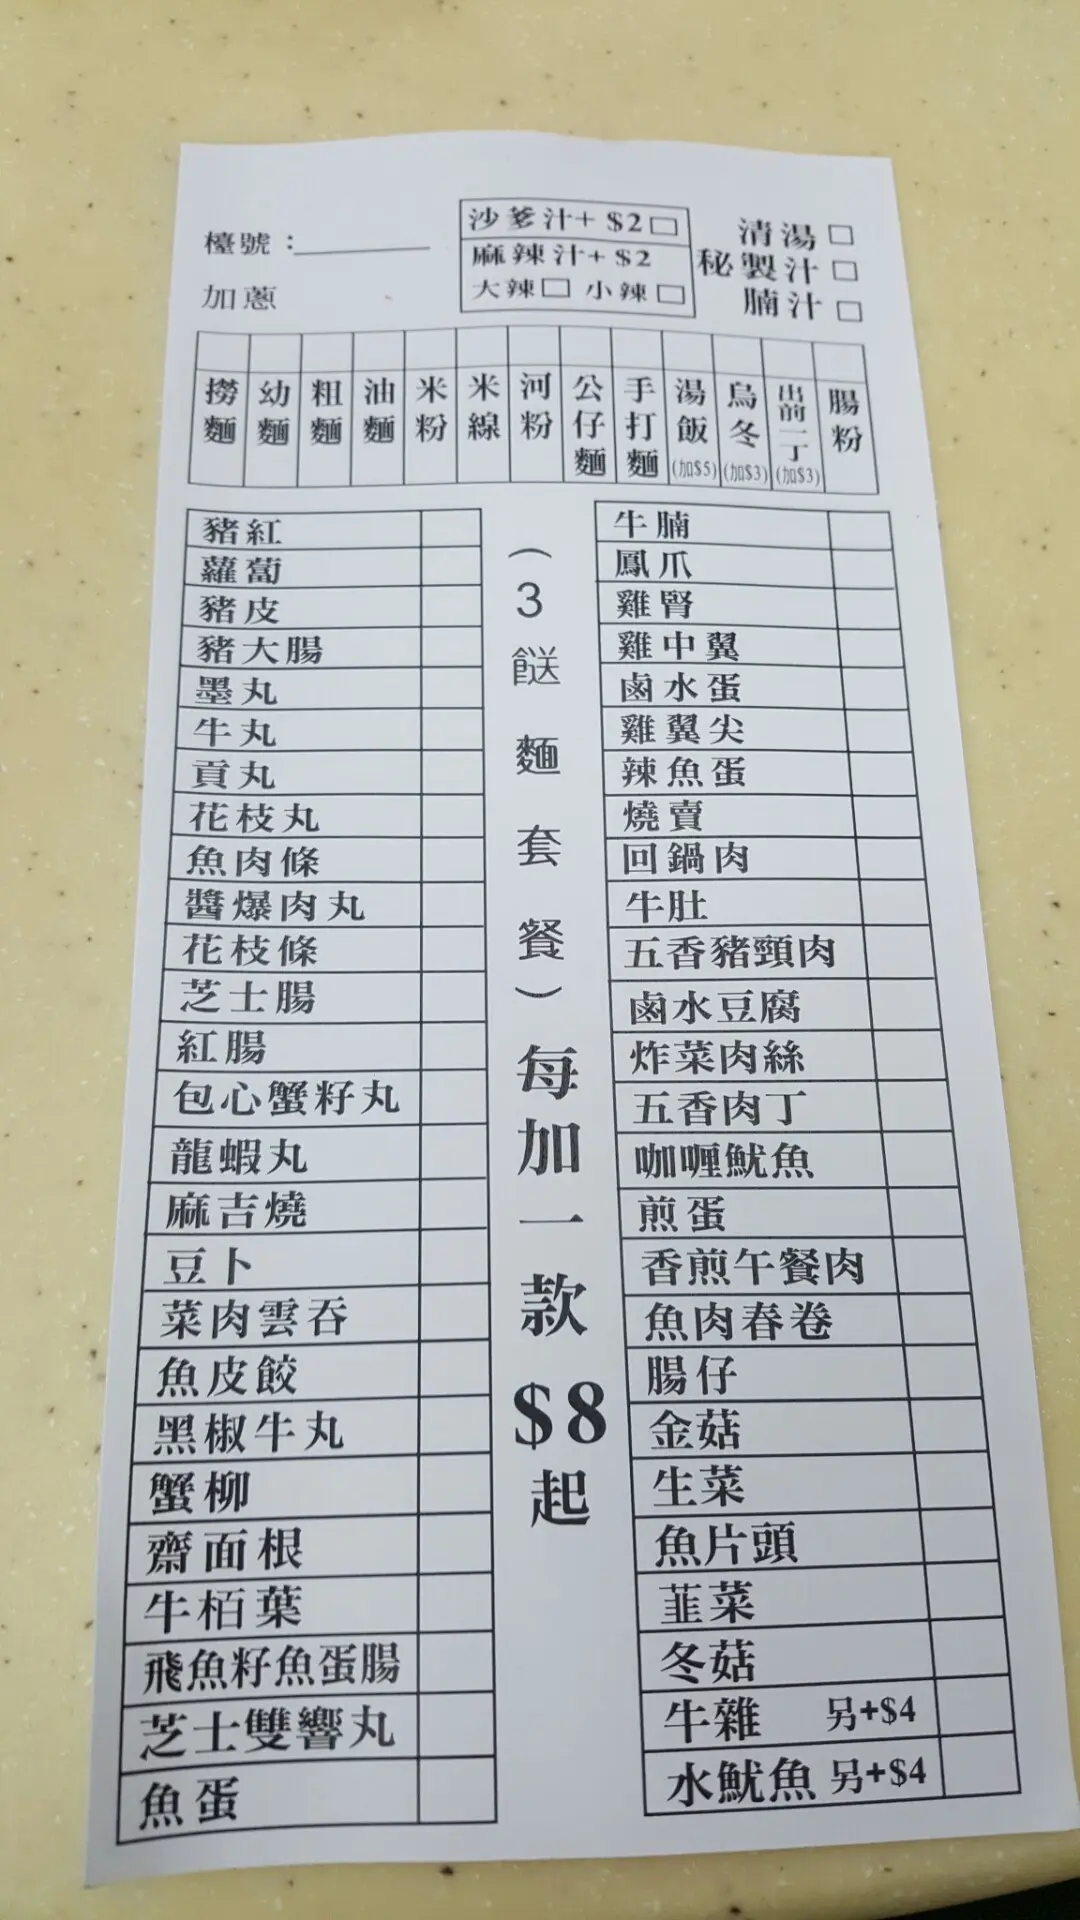 檯號：
加蔥
沙爹汁+ $2
麻辣汁+ $2
大辣 小辣
清湯
秘製汁
腩汁
撈麵
幼麵
粗麵
油麵
米粉
米線
河粉
公仔麵
手打麵
湯飯(加$5)
烏冬(加$3)
出前一丁(加$3)
腸粉
豬紅
蘿蔔
豬皮
豬大腸
墨丸
牛丸
貢丸
花枝丸
魚肉條
醬爆肉丸
花枝條
芝士腸
紅腸
包心蟹籽丸
龍蝦丸
麻吉燒
豆卜
菜肉雲吞
魚皮餃
黑椒牛丸
蟹柳
齋面根
牛栢葉
飛魚籽魚蛋腸
芝士雙響丸
魚蛋
（3餸麵套餐）每加一款$8起
牛腩
鳳爪
雞腎
雞中翼
鹵水蛋
雞翼尖
辣魚蛋
燒賣
回鍋肉
牛肚
五香豬頸肉
鹵水豆腐
炸菜肉絲
五香肉丁
咖喱魷魚
煎蛋
香煎午餐肉
魚肉春卷
腸仔
金菇
生菜
魚片頭
韮菜
冬菇
牛雜 另+$4
水魷魚 另+$4